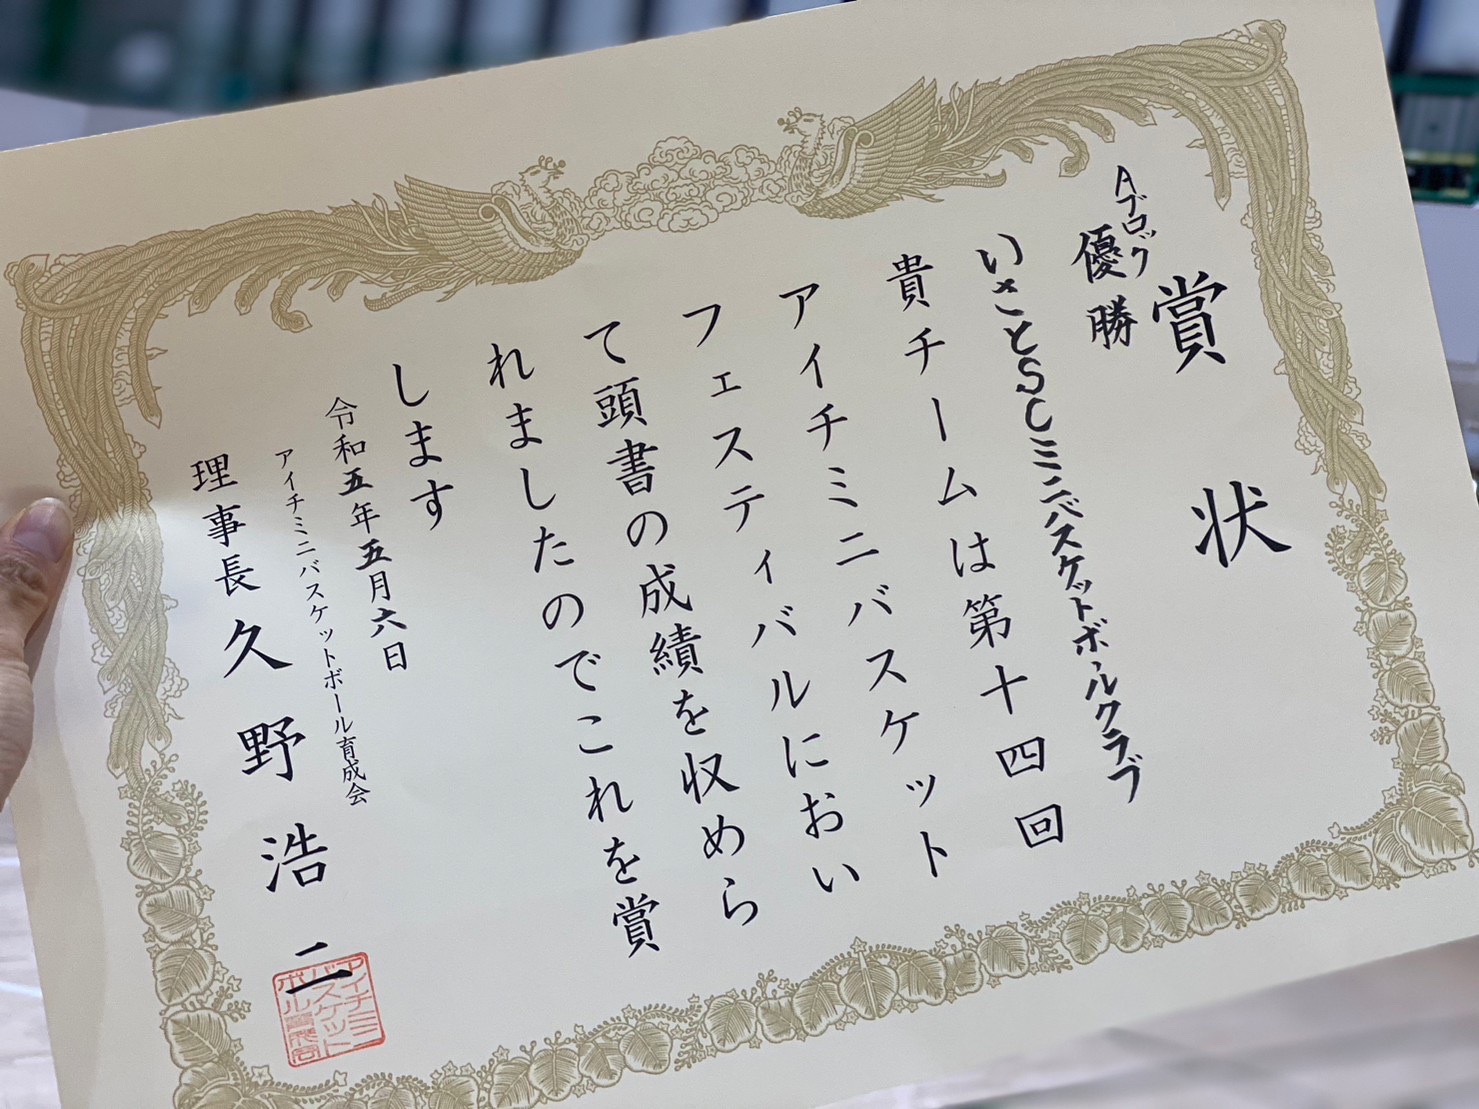 賞状
Aブロック
優勝
いさとSCミニバスケットボールクラブ
貴チームは第十四回
アイチミニバスケット
フェスティバルにおい
て頭書の成績を収めら
れましたのでこれを賞
します
令和五年五月六日
アイチミニバスケットボール育成会
理事長 久野浩二
アイチミニ
バスケット
ボール育成会